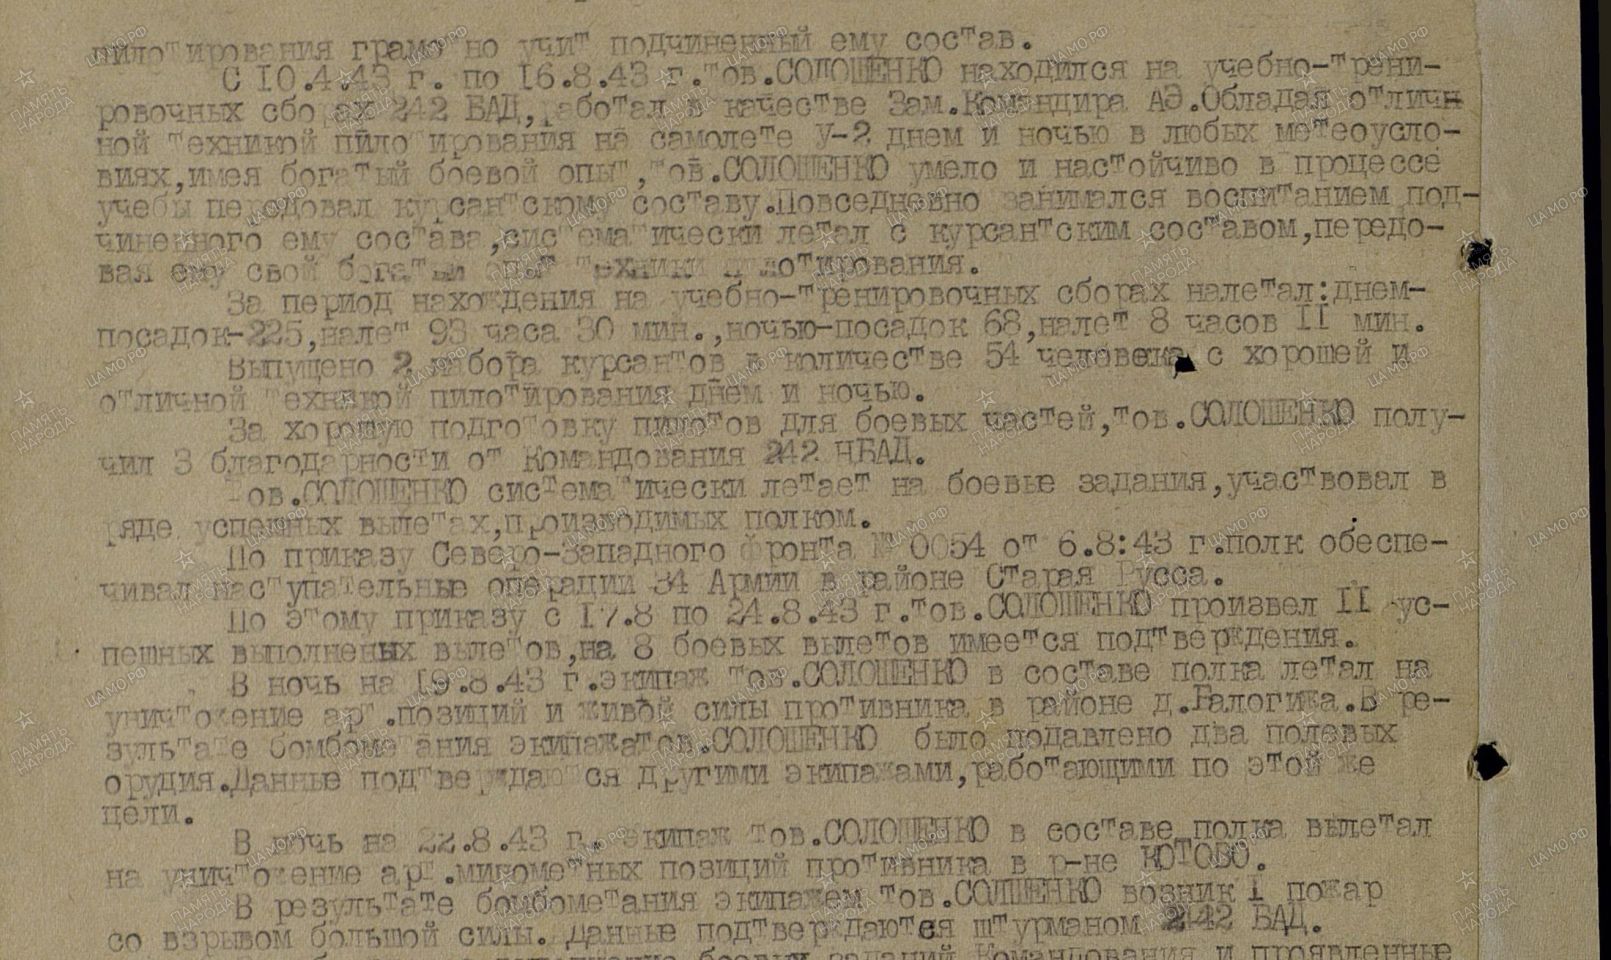 пилотирования грамотно учит подчиненный ему состав.
С 10.4.43 г. по 16.8.43 г.тов.СОЛОШЕНКО находился на учебно-трени-
ровочных сборах 242 БАД,работал в качестве Зам.Командира АЭ.Обладая отличн
ной техникой пилотирования на самолете У-2 днем и ночью в любых метеоусло-
виях,имея богатый боевой опыт,тов.СОЛОШЕНКО умело и настойчиво в процессе
учебы передовал курсантскому составу.Повседневно занимался воспитанием под-
чиненного ему состава,систематически летал с курсантским составом,передо-
вая ему свой богатый опыт техники пилотирования.
За период нахождения на учебно-тренировочных сборах налетал:днем-
посадок-225,налет 93 часа 30 мин.,ночью-посадок 68,налет 8 часов II мин.
Выпущено 2 набора курсантов в количестве 54 человека с хорошей и
отличной техникой пилотирования днем и ночью.
За хорошую подготовку пилотов для боевых частей,тов.СОЛОШЕНКО полу-
чил 3 благодарности от Командования 242 НБАД.
Тов.СОЛОШЕНКО систематически летает на боевые задания,участвовал в
ряде успешных вылетах,производимых полком.
По приказу Северо-Западного фронта № 0054 от 6.8:43 г.полк обеспе-
чивал наступательные операции 34 Армии в районе Старая Русса.
По этому приказу с 17.8 по 24.8.43 г.тов.СОЛОШЕНКО произвел II ус-
пешных выполненых вылетов,на 8 боевых вылетов имеется подтверждения.
В ночь на 19.8.43 г.экипаж тов.СОЛОШЕНКО в составе полка летал на
уничтожение арт.позиций и живой силы противника в районе д.Балогижа.В ре-
зультате бомбометания экипажатов.СОЛОШЕНКО было подавлено два полевых
орудия.Данные подтверждаются другими экипажами,работающими по этой же
цели.
В ночь на 22.8.43 г. экипаж тов.СОЛОШЕНКО в составе полка вылетал
на уничтожение арт.минометных позиций противника в р-не КОТОВО.
В результате бомбометания экипажем тов.СОЛШЕНКО возник I пожар
со взрывом большой силы. Данные подтверждаются штурманом 242 БАД.
боевых заданий Командования и проявленные